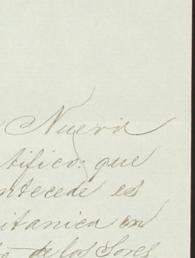 Nueva
tifico: que
ntecede es
itanica en
de los Sores